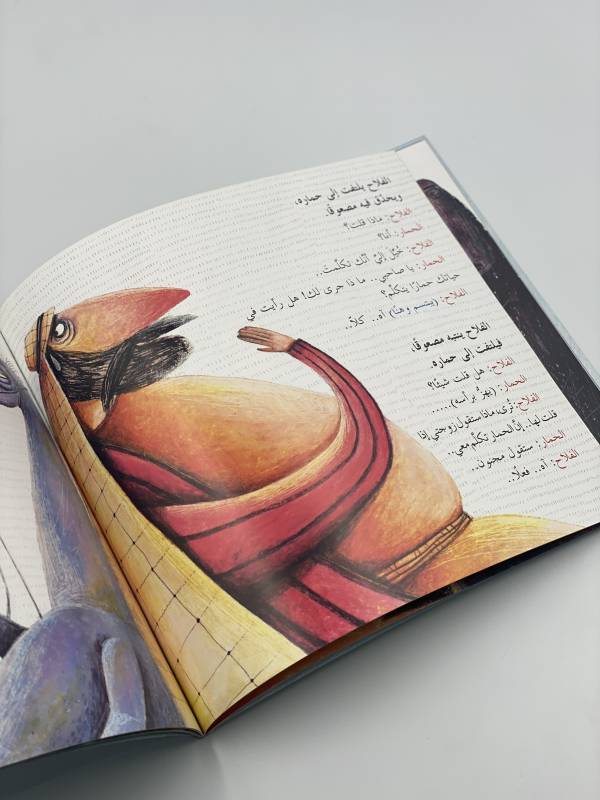 الفلاح يلتفت إلى حماره،
ويحدق فيه مصعوقًا.
الفلاح: ماذا قلت؟
الحمار: أنا؟
الفلاح: خُيِّل إليَّ أنّك تكلّمتَ..
الحمار: يا صاحبي.. ما ذا جرى لك! هل رأيت في
حياتك حمارًا يتكلّم؟
الفلاح: (يبتسم وهنًا) آه.. كلاّ..
الفلاح ينتبه مصعوقًا،
فيلتفت إلى حماره.
الفلاح: هل قلت شيئًا؟
الحمار: (يهزّ برأسه).....
الفلاح: تُرى، ماذا ستقول زوجتي إذا
قلت لها.. إنَّ الحمار تكلّم معي..
الحمار: ستقول مجنون..
الفلاح: آه.. فعلًا..